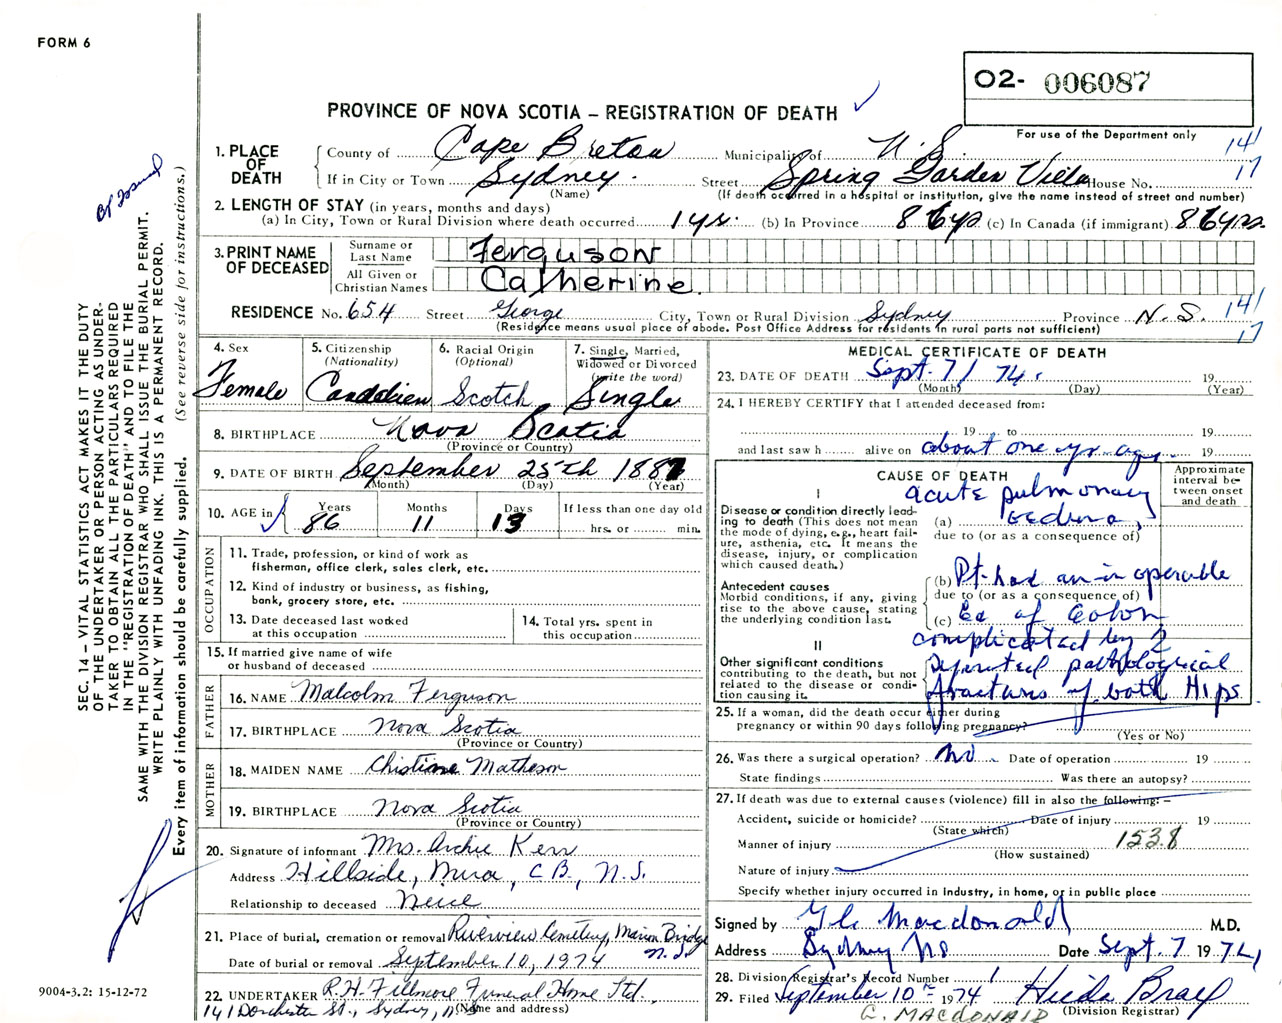 FORM 6
O2- 006087
For use of the Department only
PROVINCE OF NOVA SCOTIA – REGISTRATION OF DEATH ✓
1. PLACE OF DEATH
County of Cape Breton Municipality of N. S. 141
If in City or Town Sydney. Street Spring Garden Villa House No. 17
(Name) (If death occurred in a hospital or institution, give the name instead of street and number)
2. LENGTH OF STAY (in years, months and days)
(a) In City, Town or Rural Division where death occurred 1 yr. (b) In Province 86 yrs (c) In Canada (if immigrant) 86 yrs.
3. PRINT NAME OF DECEASED
Surname or Last Name Ferguson
All Given or Christian Names Catherine.
RESIDENCE No. 654 Street George City, Town or Rural Division Sydney Province N. S. 141
(Residence means usual place of abode. Post Office Address for residents in rural parts not sufficient) 17
4. Sex
Female
5. Citizenship
(Nationality)
Canadien
6. Racial Origin
(Optional)
Scotch
7. Single, Married,
Widowed or Divorced
(write the word)
Single
8. BIRTHPLACE Nova Scotia
(Province or Country)
9. DATE OF BIRTH September 25th 1887
(Month) (Day) (Year)
10. AGE in
Years Months Days If less than one day old
86 11 13 hrs. or min.
OCCUPATION
11. Trade, profession, or kind of work as
fisherman, office clerk, sales clerk, etc.
12. Kind of industry or business, as fishing,
bank, grocery store, etc.
13. Date deceased last worked
at this occupation
14. Total yrs. spent in
this occupation
15. If married give name of wife
or husband of deceased
FATHER
16. NAME Malcolm Ferguson
17. BIRTHPLACE Nova Scotia
(Province or Country)
MOTHER
18. MAIDEN NAME Christine Matheson
19. BIRTHPLACE Nova Scotia
(Province or Country)
20. Signature of informant Mrs. Archie Kerr
Address Hillside, Mira, C.B., N.S.
Relationship to deceased Neice
21. Place of burial, cremation or removal Riverview Cemetery, Marion Bridge
N.S.
Date of burial or removal September 10, 1974
22. UNDERTAKER R.H. Fillmore Funeral Home Ltd.
141 Dorchester St., Sydney, N.S (Name and address)
MEDICAL CERTIFICATE OF DEATH
23. DATE OF DEATH Sept. 7/ 74. 19
(Month) (Day) (Year)
24. I HEREBY CERTIFY that I attended deceased from:
19 to 19
and last saw h alive on about one yr. ago. 19
CAUSE OF DEATH
Approximate interval between onset and death
I
Disease or condition directly leading to death (This does not mean the mode of dying, e.g., heart failure, asthenia, etc. It means the disease, injury, or complication which caused death.)
acute pulmonary
(a) oedema,
due to (or as a consequence of)
Antecedent causes
Morbid conditions, if any, giving
rise to the above cause, stating
the underlying condition last.
(b) Pt. had an inoperable
due to (or as a consequence of)
(c) Ca of Colon
complicated by 2
II
Other significant conditions
contributing to the death, but not
related to the disease or condition causing it.
pathological
fractures of both Hips
25. If a woman, did the death occur either during
pregnancy or within 90 days following pregnancy?
(Yes or No)
26. Was there a surgical operation? no Date of operation 19
State findings Was there an autopsy?
27. If death was due to external causes (violence) fill in also the following: –
Accident, suicide or homicide? Date of injury 19
(State which)
Manner of injury 1538
(How sustained)
Nature of injury
Specify whether injury occurred in industry, in home, or in public place
Signed by Macdonald M.D.
Address Sydney NS Date Sept. 7 1974
28. Division Registrar's Record Number 1
29. Filed September 10th 1974 Hilda Brace
(Division Registrar)
G. MACDONALD
SEC. 14 – VITAL STATISTICS ACT MAKES IT THE DUTY
OF THE UNDERTAKER OR PERSON ACTING AS UNDER-
TAKER TO OBTAIN ALL THE PARTICULARS REQUIRED
IN THE "REGISTRATION OF DEATH" AND TO FILE THE
SAME WITH THE DIVISION REGISTRAR WHO SHALL ISSUE THE BURIAL PERMIT.
WRITE PLAINLY WITH UNFADING INK. THIS IS A PERMANENT RECORD.
Every item of information should be carefully supplied. (See reverse side for instructions.)
9004-3.2: 15-12-72